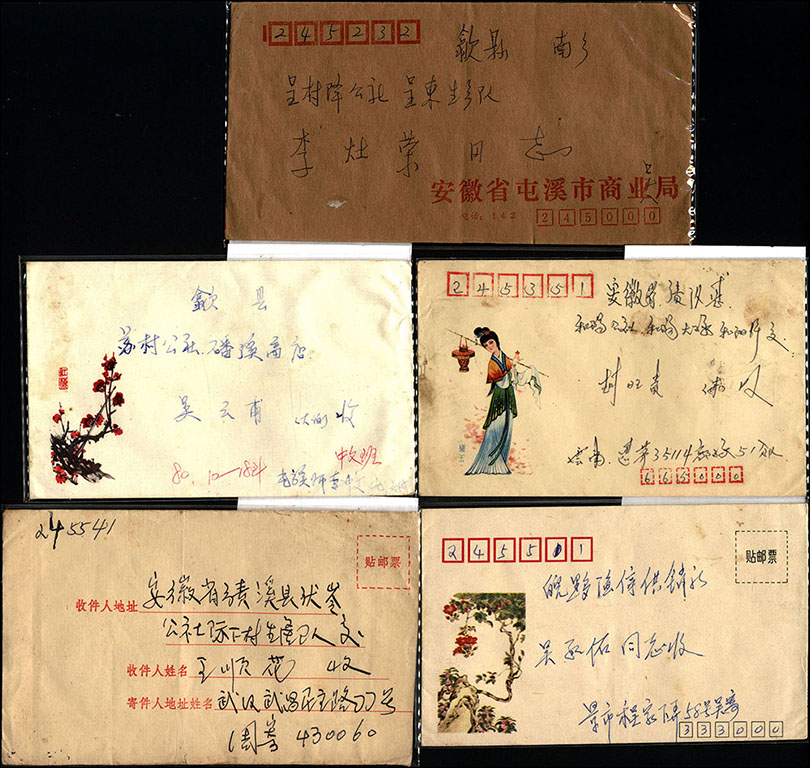 245232
歙县 南乡
呈村降公社 呈東生产队
李灶荣同志
安徽省屯溪市商业局
电话:142 245000
歙县
苏村公社磻溪商店
吴云甫 收
中文班
80.10-18
245351
安徽省绩溪县
和阳公社 和阳大队
封旺贵 收
云南 35114 51
665000
245541
贴邮票
收件人地址 安徽省绩溪县伏岺
公社际下村生产队 交
收件人姓名 王顺花 收
寄件人地址姓名 武汉武昌民主路77号
周 430060
245501
贴邮票
皖黟渔亭供销社
吴 佑同志收
景市程家 58号吴寄
333000